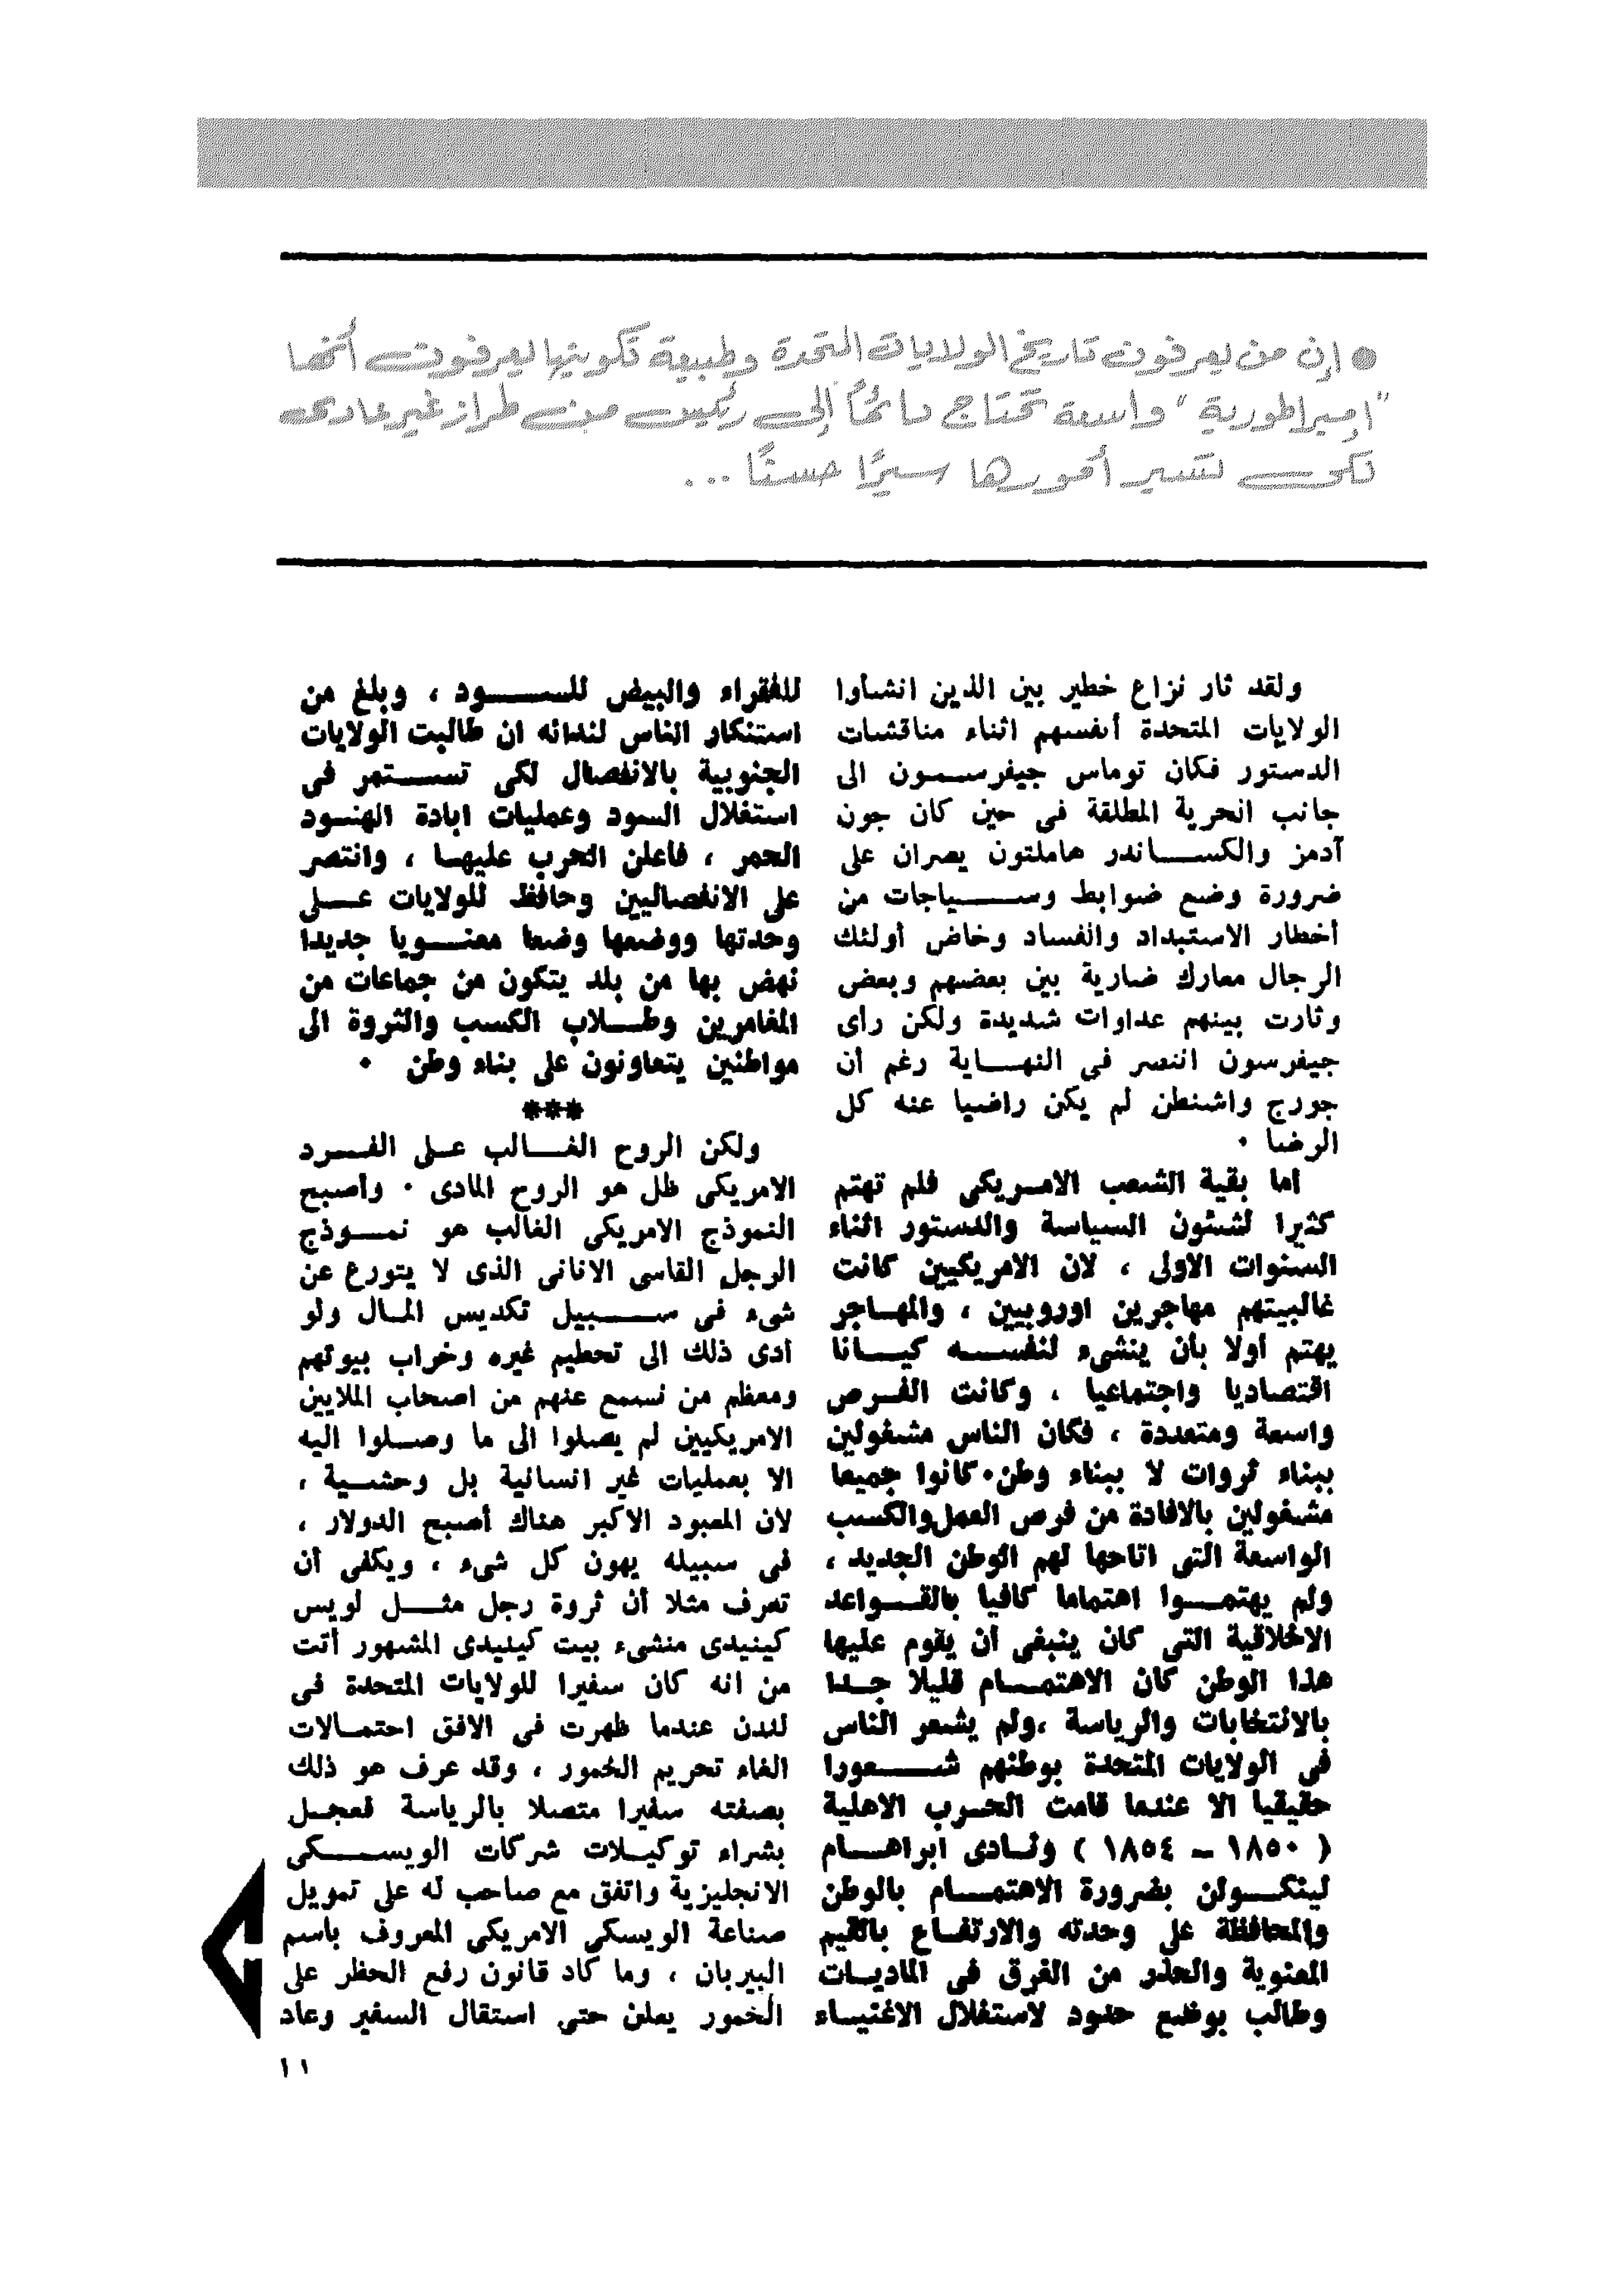 ● إن من يعرفون تاريخ الولايات المتحدة وطبيعة تكوينها يعرفون أنها
"امبراطورية" واسعة تحتاج دائمًا إلى رئيس من طراز غير عادى
لكى تسير أمورها سيرًا حسنًا ...
ولقد ثار نزاع خطير بين الذين انشأوا
الولايات المتحدة أنفسهم اثناء مناقشات
الدستور فكان توماس جيفرسـمون الى
جانب الحرية المطلقة فى حين كان جون
آدمز والكسـاندر هاملتون يصران على
ضرورة وضع ضوابط وسـياجات من
أخطار الاستبداد والفساد وخاض أولئك
الرجال معارك ضارية بين بعضهم وبعض
وثارت بينهم عداوات شديدة ولكن رأى
جيفرسون انتصر فى النهـاية رغم أن
جورج واشنطن لم يكن راضيا عنه كل
الرضا ٠
أما بقية الشعب الامـريكى فلم تهتم
كثيرا لشئون السياسة والدستور اثناء
السنوات الاولى ، لان الامريكيين كانت
غالبيتهم مهاجرين اوروبيين ، والمهـاجر
يهتم أولا بأن ينشىء لنفسـه كيـانا
اقتصاديا واجتماعيا ، وكانت الفـرص
واسعة ومتعددة ، فكان الناس مشغولين
ببناء ثروات لا ببناء وطن٠ كانوا جميعا
مشغولين بالافادة من فرص العمل والكسب
الواسعة التى اتاحها لهم الوطن الجديد ،
ولم يهتمـوا اهتماما كافيا بالقـواعد
الاخلاقية التى كان ينبغى أن يقوم عليها
هذا الوطن كان الاهتمـام قليلا جـدا
بالانتخابات والرياسة ،ولم يشعر الناس
فى الولايات المتحدة بوطنهم شـعورا
حقيقيا الا عندما قامت الحـرب الاهلية
( ١٨٥٠ - ١٨٥٤ ) ونـادى ابراهـام
لينكـولن بضرورة الاهتمـام بالوطن
والمحافظة على وحدته والارتفـاع بالقيم
المعنوية والحذر من الغرق فى الماديـات
وطالب بوضع حدود لاستغلال الاغنيـاء
للفقراء والبيض للسـود ، وبلغ من
استنكار الناس لندائه ان طالبت الولايات
الجنوبية بالانفصال لكى تسـتمر فى
استغلال السود وعمليات ابادة الهنـود
الحمر ، فاعلن الحرب عليهـا ، وانتصر
على الانفصاليين وحافظ للولايات عـلى
وحدتها ووضعها وضعا معنـويا جديدا
نهض بها من بلد يتكون من جماعات من
المغامرين وطـلاب الكسب والثروة الى
مواطنين يتعاونون على بناء وطن ٠
***
ولكن الروح الغـالب عـلى الفـرد
الامريكى ظل هو الروح المادى ٠ وأصبح
النموذج الامريكى الغالب هو نمـوذج
الرجل القاسى الانانى الذى لا يتورع عن
شىء فى سـبيل تكديس المـال ولو
أدى ذلك الى تحطيم غيره وخراب بيوتهم
ومعظم من نسمع عنهم من اصحاب الملايين
الامريكيين لم يصلوا الى ما وصـلوا اليه
الا بعمليات غير انسانية بل وحشـية ،
لان المعبود الاكبر هناك أصبح الدولار ،
فى سبيله يهون كل شىء ، ويكفى أن
تعرف مثلا أن ثروة رجل مثـل لويس
كينيدى منشىء بيت كينيدى المشهور أتت
من انه كان سفيرا للولايات المتحدة فى
لندن عندما ظهرت فى الافق احتمـالات
الغاء تحريم الخمور ، وقد عرف هو ذلك
بصفته سفيرا متصلا بالرياسة فعجـل
بشراء توكيـلات شركات الويسـكى
الانجليزية واتفق مع صاحب له على تمويل
صناعة الويسكى الامريكى المعروف باسم
البيربان ، وما كاد قانون رفع الحظر على
الخمور يعلن حتى استقال السفير وعاد
١١